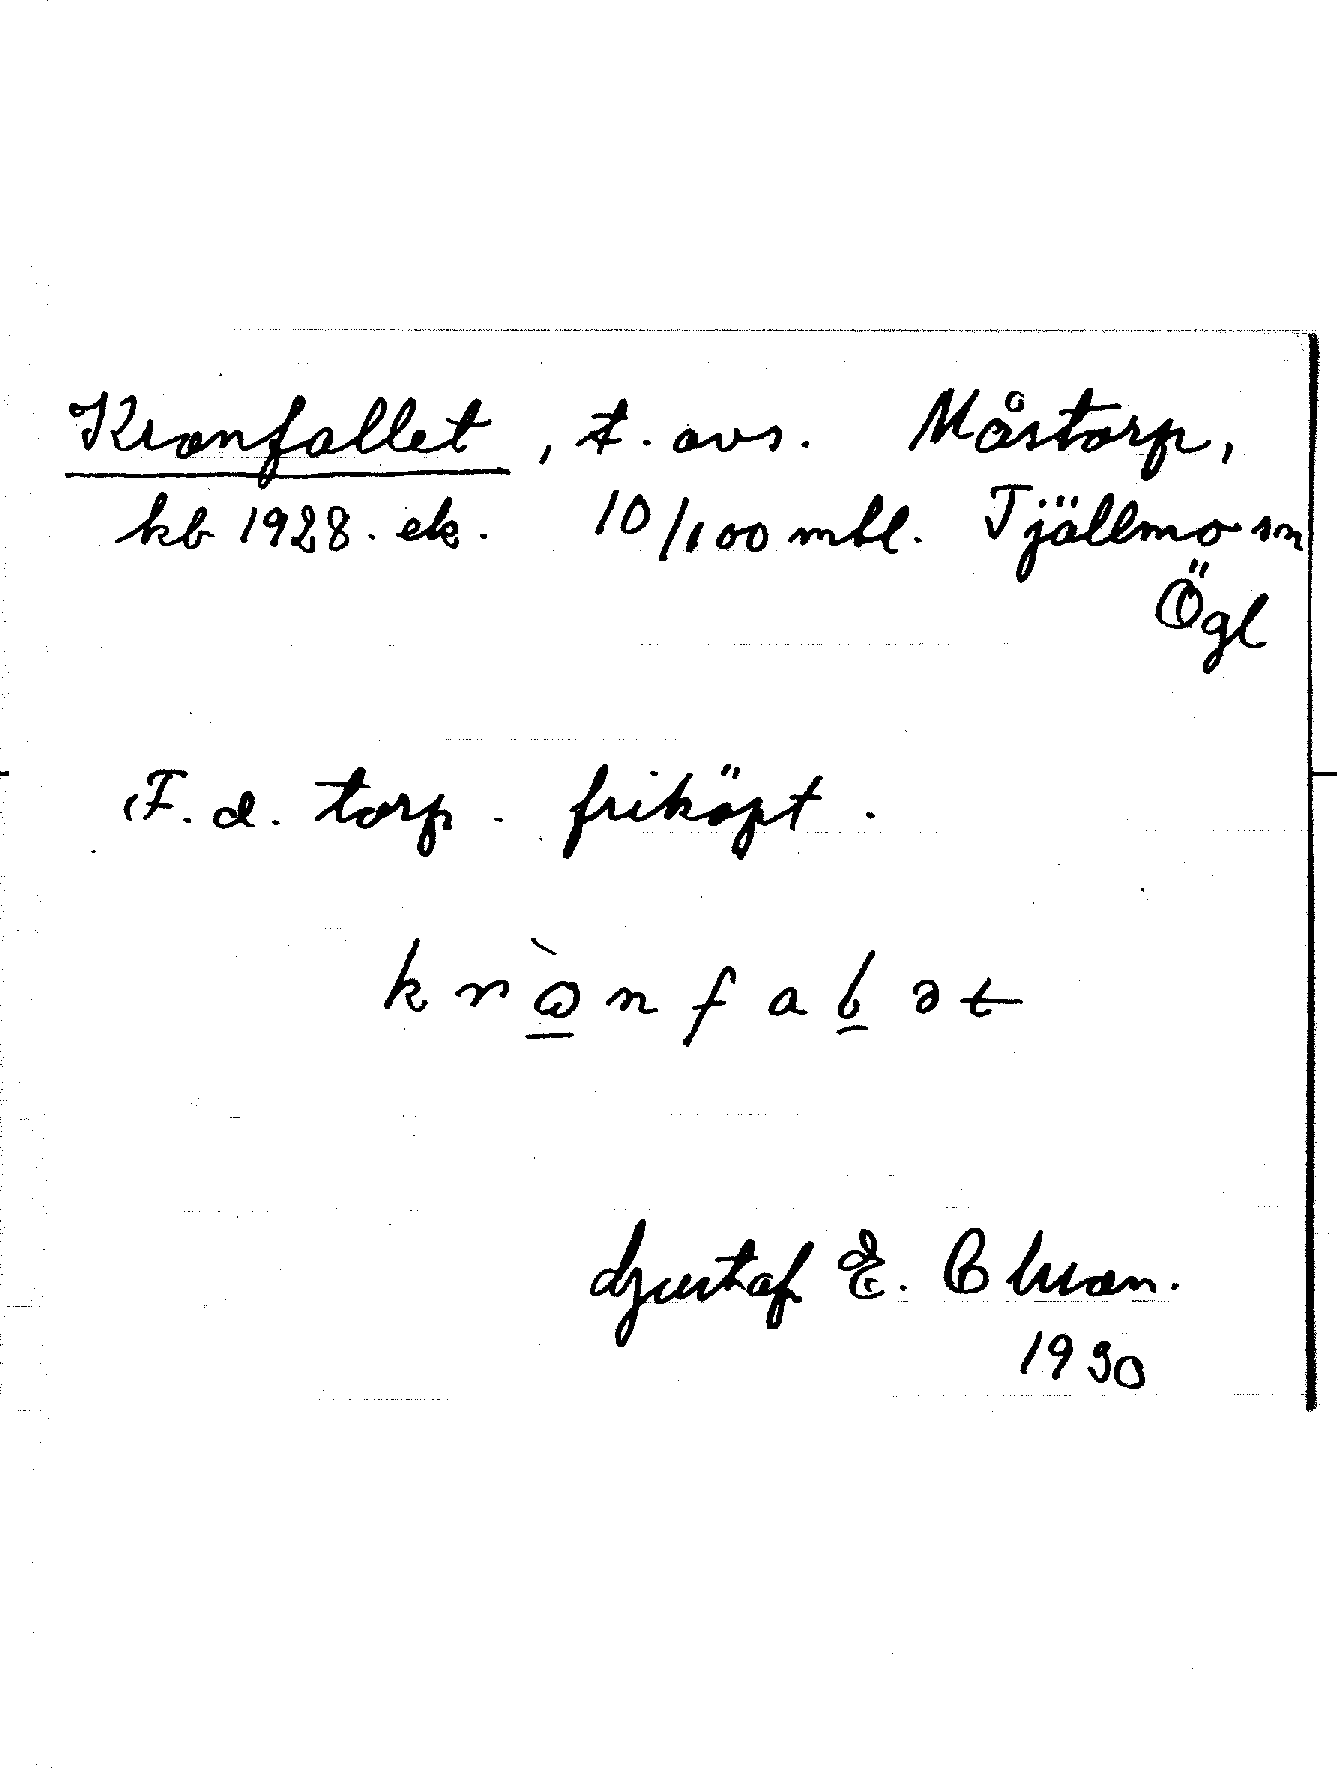 Kronfallet, t. avs. Måstorp,
kb 1928. ek. 10/100 mtl. Tjällmo sn
Ögl
F. d. torp. friköpt.
Gustaf E.
1930